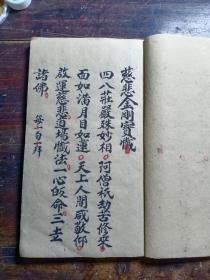 慈悲金剛寶懺
四八莊嚴殊妙相 阿僧祇劫苦修來
面如滿月目如蓮 天上人間咸敬仰
啟運慈悲道場懺法一心皈命三世
諸佛 每一句一拜